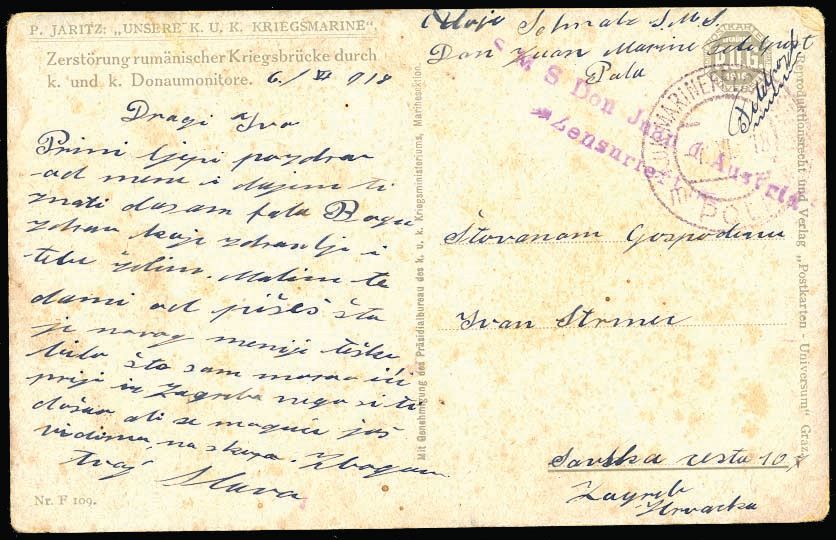 P. JARITZ: „UNSERE K. U. K. KRIEGSMARINE“,
Zerstörung rumänischer Kriegsbrücke durch
k. und k. Donaumonitore.
6./VI 918
Dragi Ivo
Primi ljepi pozdrav
od mene i dajem ti
znati da sam fala Bogu
zdrav koje zdravlje i
tebi želim. Molim te
dami od pišeš šta
je novog meni je teško
bilo što sam morao ići
prije iz Zagreba nego si ti
došao ali se moguće još
vidimo na skoro. Zbogom
tvoj Slava
Nr. F 109.
Mit Genehmigung des Präsidialbureau des k. u. k. Kriegsministeriums, Marinesektion.
Schmalz S.M.S.
Don Juan Marine Feldpost
Pola
S. M. S Don Juan d'Austria
Zensuriert
K.U.K. MARINEFELDPOSTAMT
POLA
POSTKARTEN
P.U.G.
1916
Feldpost
Štovanom Gospodinu
Ivan Strmec
Savska cesta 10
Zagreb
Hrvatska
Reproduktionsrecht und Verlag „Postkarten - Universum“ Graz.